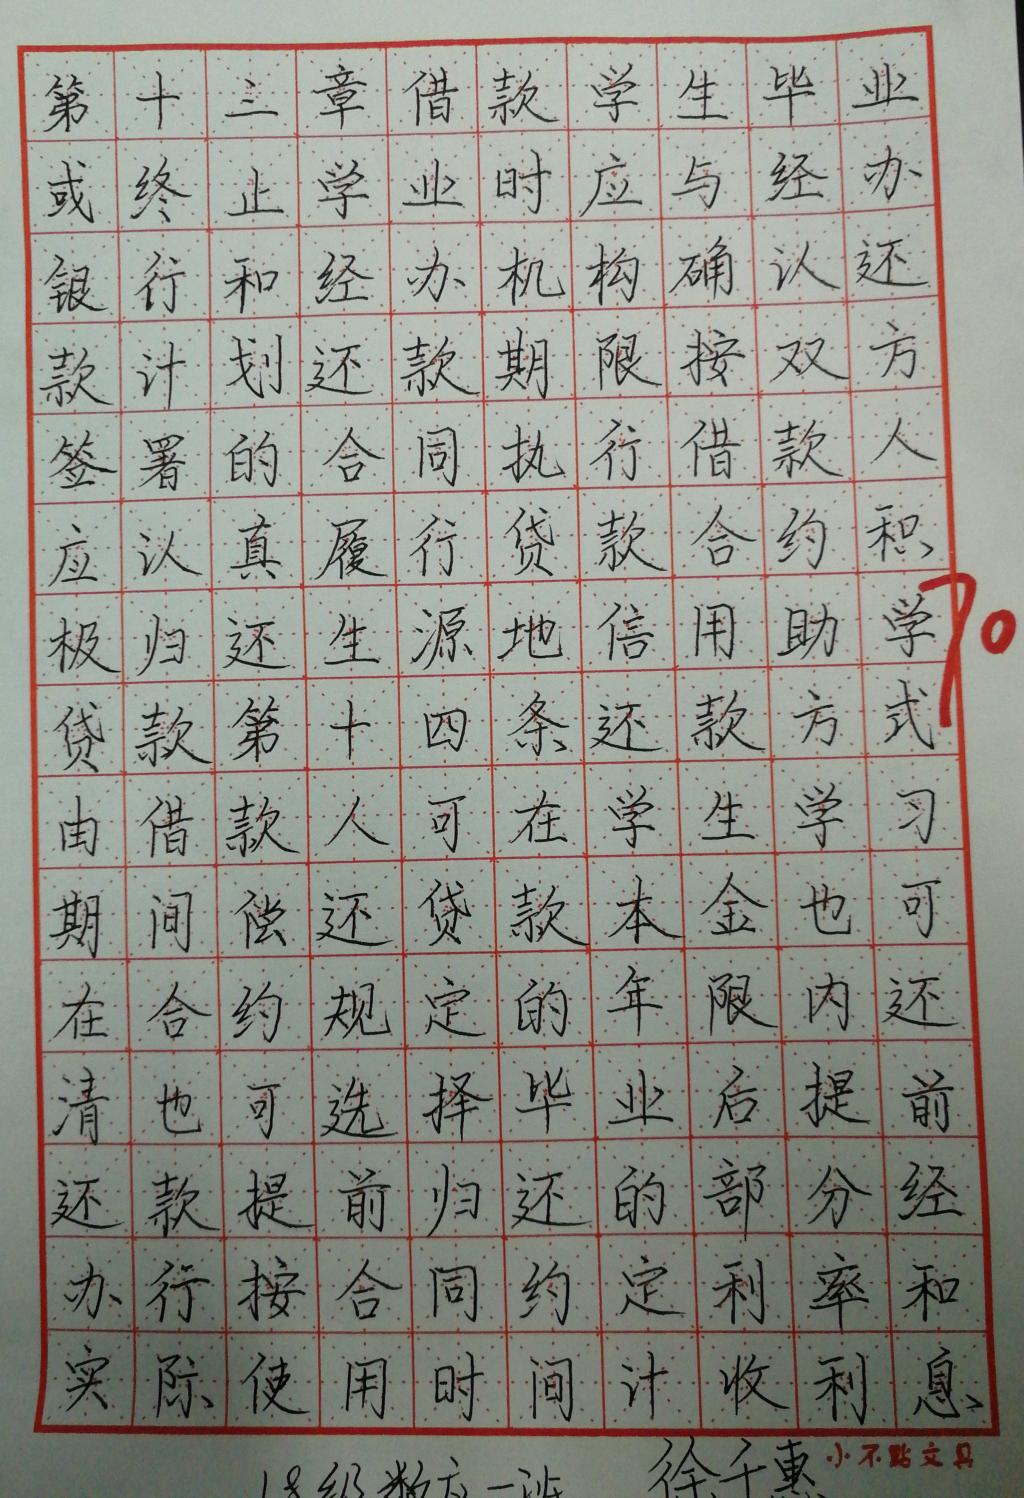 第十三章借款学生毕业
或终止学业时应与经办
银行和经办机构确认还
款计划还款期限按双方
签署的合同执行借款人
应认真履行贷款合约积
极归还生源地信用助学
70
贷款第十四条还款方式
由借款人可在学生学习
期间偿还贷款本金也可
在合约规定的年限内还
清也可选择毕业后提前
还款提前归还的部分经
办行按合同约定利率和
实际使用时间计收利息
小不點文具
18级数应一班 徐千惠